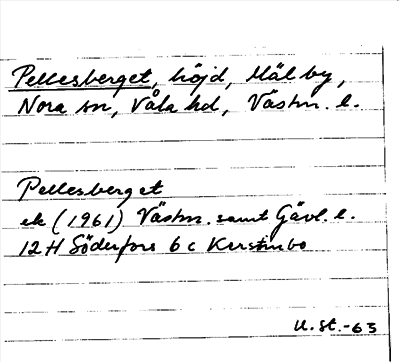 Pellesberget, höjd, Mälby,
Nora sn, Våla hd, Västm. l.
Pellesberget
ek (1961) Västm. samt Gävl. l.
12H Söderfors 6 c Kerstinbo
U. St. -63